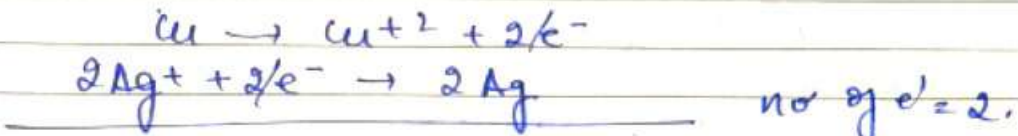 Cu → Cu+2 + 2e-
2Ag+ + 2e- → 2Ag
no of e' = 2.